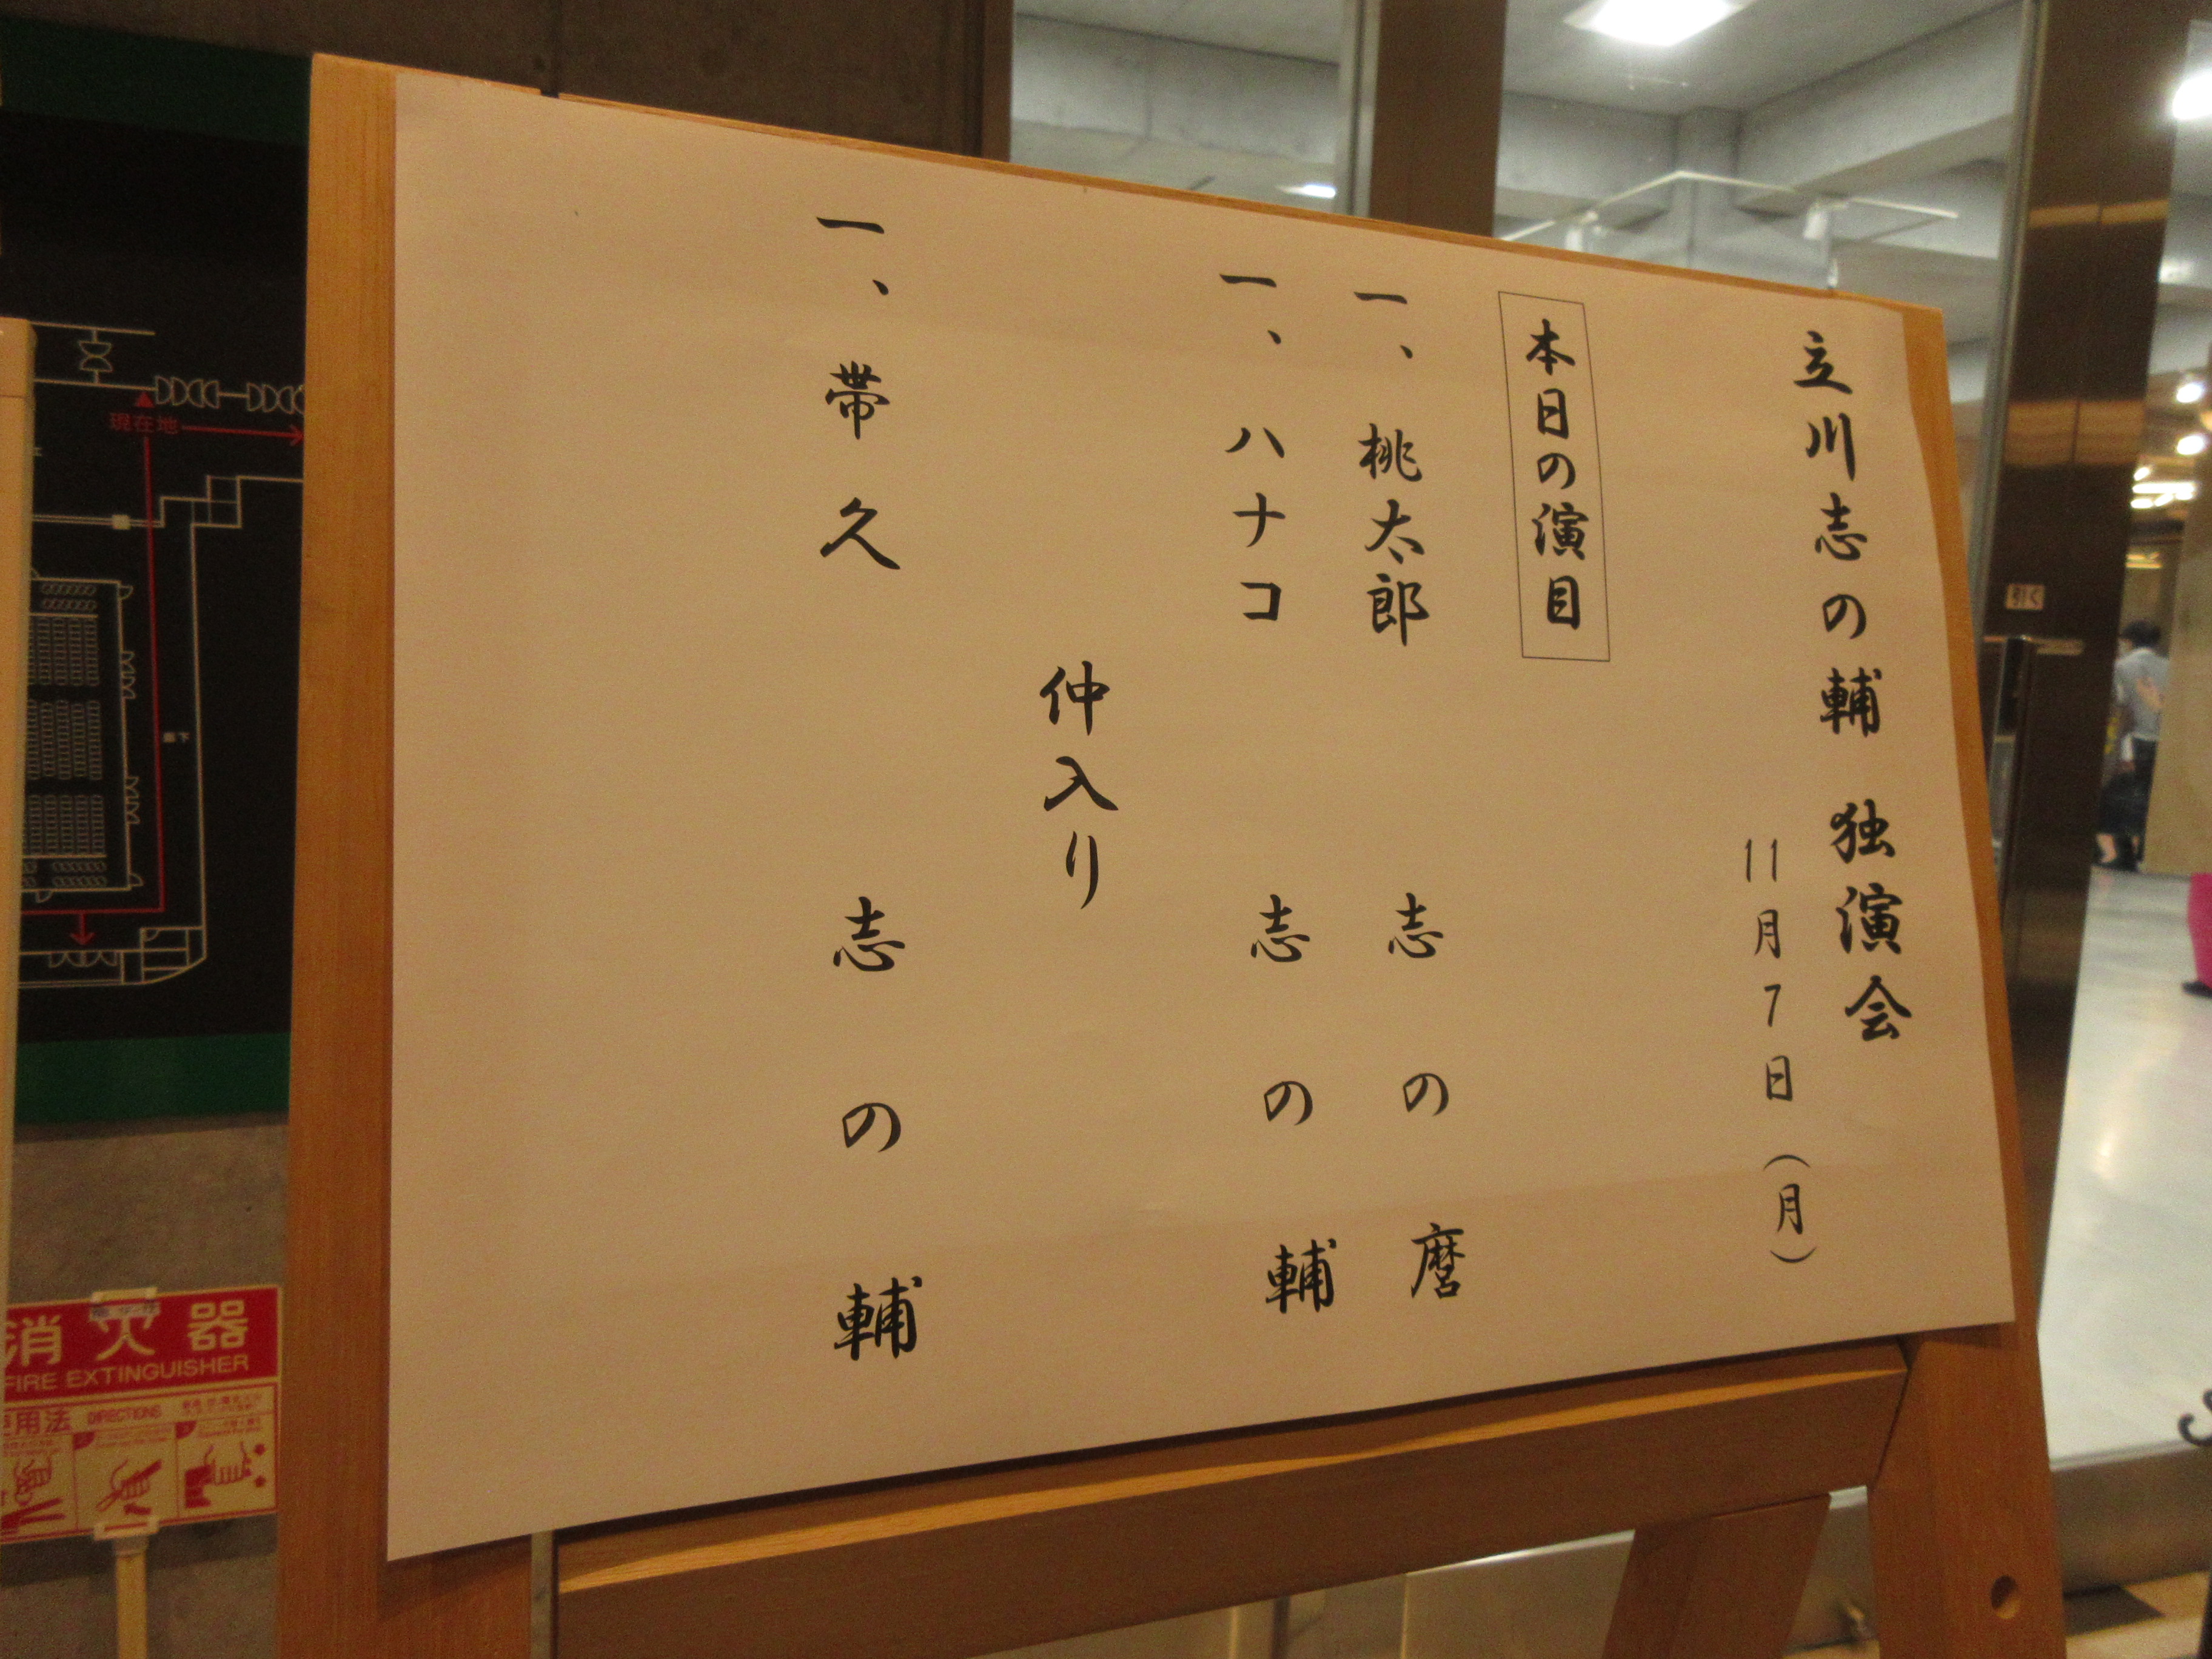 立川志の輔 独演会
11月7日（月）
本日の演目
一、桃太郎 志の麿
一、ハナコ 志の輔
仲入り
一、帯久 志の輔
現在地
廊下
引く
消火器
FIRE EXTINGUISHER
使用法 DIRECTIONS